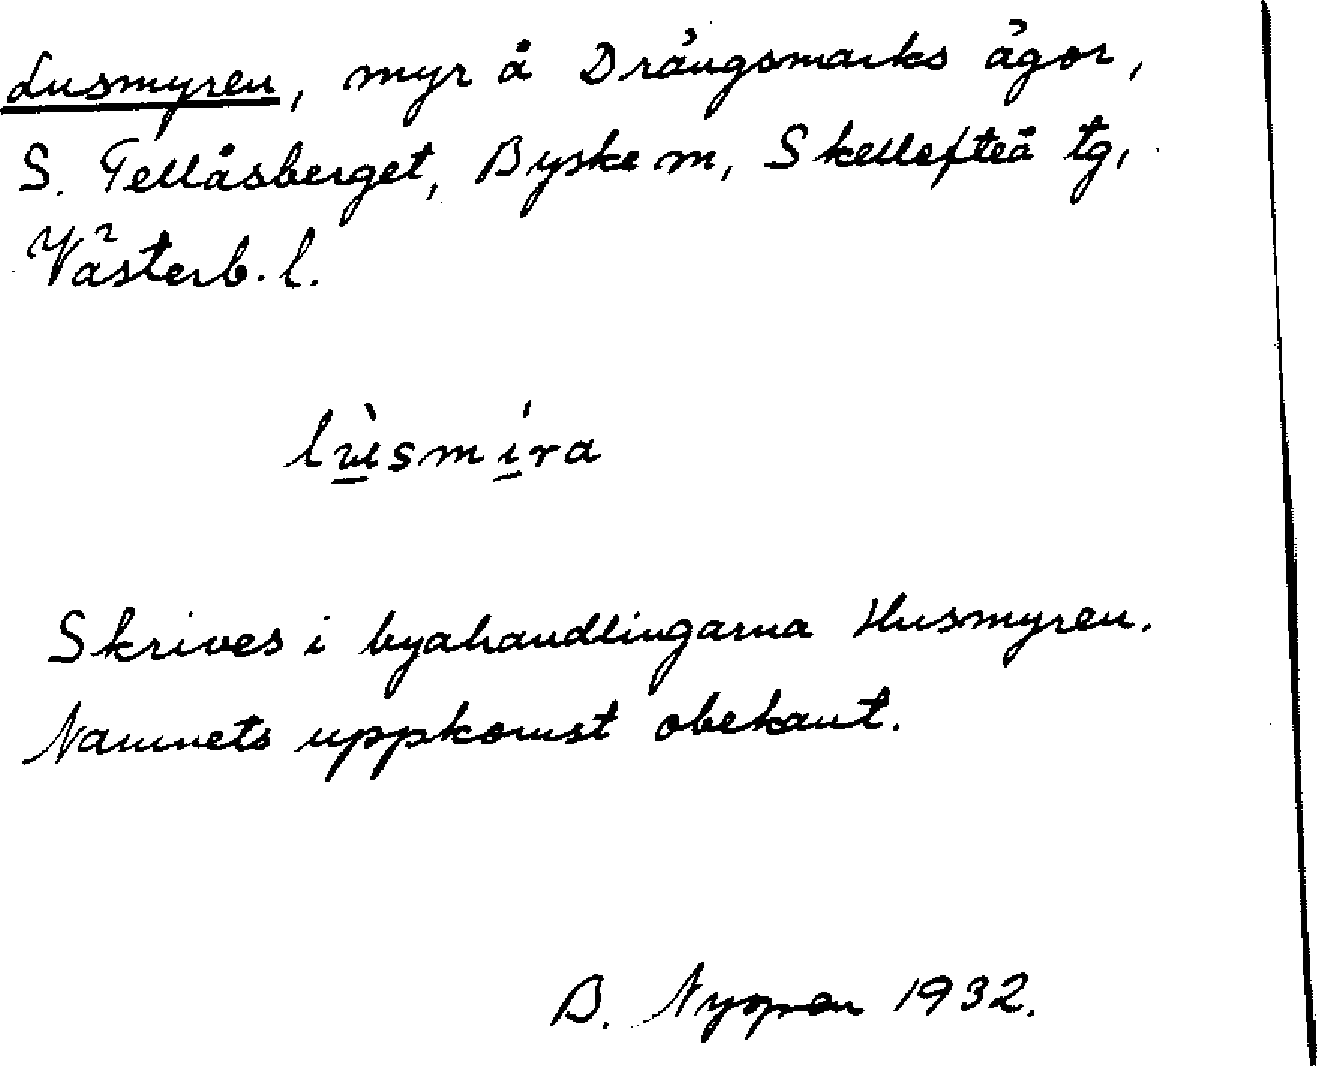 Lusmyren, myr å Drängsmarks ägor,
S. Tellåsberget, Byske sn, Skellefteå tg,
Västerb. l.
lùsmíra
Skrives i byahandlingarna Husmyren.
Namnets uppkomst obekant.
B. 1932.